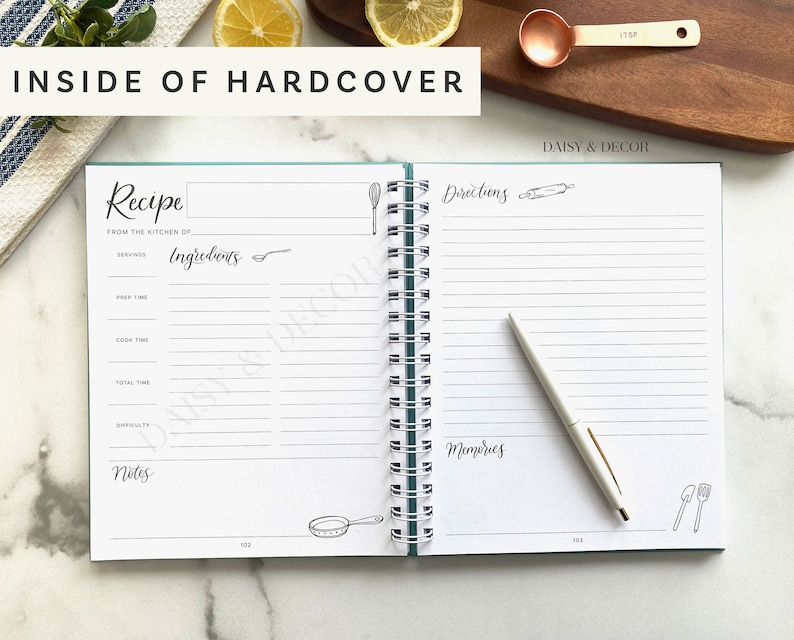 INSIDE OF HARDCOVER
1TSP
DAISY & DECOR
Recipe
FROM THE KITCHEN OF
SERVINGS
Ingredients
PREP TIME
COOK TIME
TOTAL TIME
DIFFICULTY
Notes
102
DAISY & DECOR
Directions
Memories
103